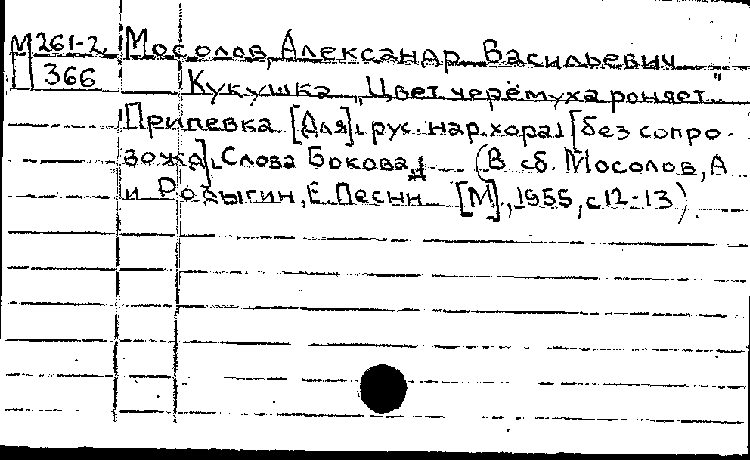 М 261-2 Мосолов, Александр Васильевич
366 Кукушка „Цвет черёмуха роняет"
Припевка [Для] рус. нар. хора [без сопро-
вожд]. Слова Бокова, .... (В сб. Мосолов, А
и Родыгин, Е. Песни [М]., 1955, с 12-13)